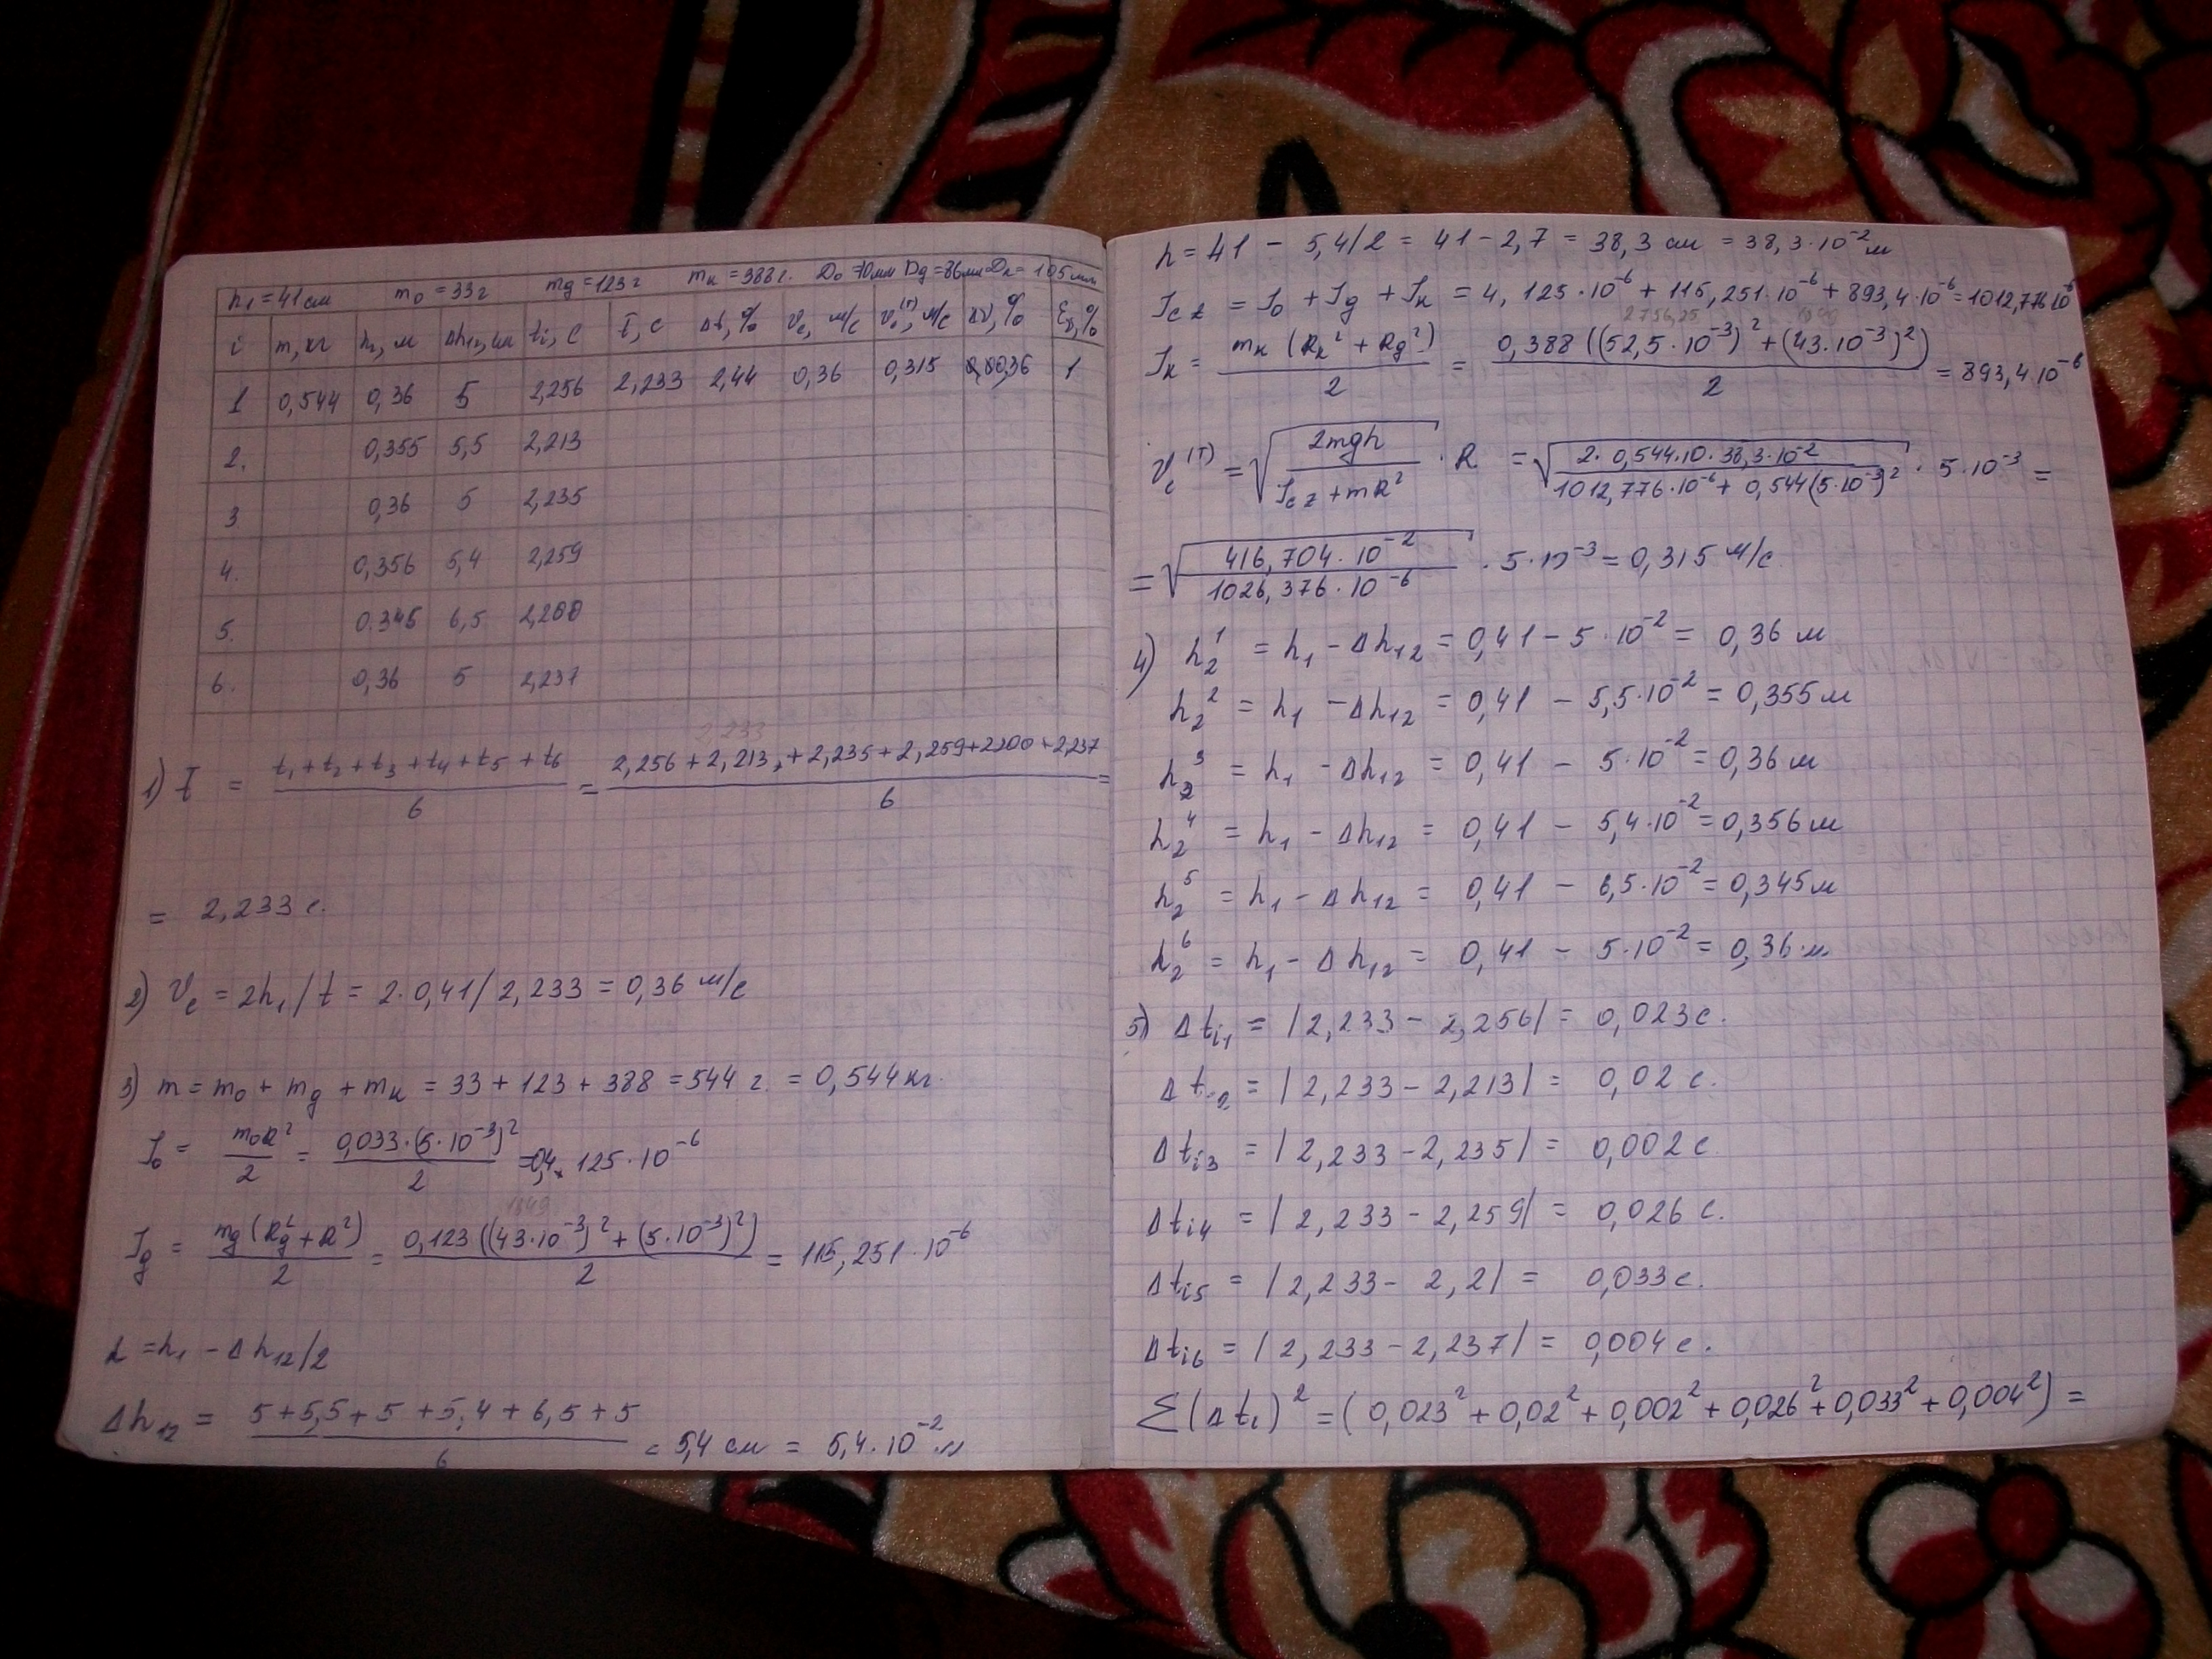 h₁ = 41 см m₀ = 33 г mg = 123 г mк = 388 г. D₀ = 10 мм Dg = 86 мм Dк = 105 мм
i m, кг h₂, м Δh₁₂, см tᵢ, с t̄, с Δt, % υc, м/с υc⁽ᵀ⁾, м/с Δυ, % ευ, %
1 0,544 0,36 5 2,256 2,233 2,44 0,36 0,315 0,0036 1
2. 0,355 5,5 2,213
3 0,36 5 2,235
4. 0,356 5,4 2,259
5. 0.345 6,5 2,200
6. 0,36 5 2,237
2,233
1) t̄ = (t₁ + t₂ + t₃ + t₄ + t₅ + t₆)/6 = (2,256 + 2,213 + 2,235 + 2,259 + 2200 + 2,237)/6 =
= 2,233 с.
2) υc = 2h₁/t = 2·0,41/2,233 = 0,36 м/с
3) m = m₀ + mg + mк = 33 + 123 + 388 = 544 г. = 0,544 кг.
J₀ = m₀R²/2 = 0,033·(5·10⁻³)²/2 = 0,4125·10⁻⁶
1849
Jg = mg(Rg² + R²)/2 = 0,123((43·10⁻³)² + (5·10⁻³)²)/2 = 115,251·10⁻⁶
h = h₁ - Δh₁₂/2
Δh₁₂ = (5 + 5,5 + 5 + 5,4 + 6,5 + 5)/6 = 5,4 см = 5,4·10⁻² м
h = 41 - 5,4/2 = 41 - 2,7 = 38,3 см = 38,3·10⁻² м
Jcz = J₀ + Jg + Jк = 4,125·10⁻⁶ + 115,251·10⁻⁶ + 893,4·10⁻⁶ = 1012,776·10⁻⁶
2756,25 1849
Jк = mк(Rк² + Rg²)/2 = 0,388((52,5·10⁻³)² + (43·10⁻³)²)/2 = 893,4·10⁻⁶
υc⁽ᵀ⁾ = √(2mgh/(Jcz + mR²)) · R = √(2·0,544·10·38,3·10⁻²/(1012,776·10⁻⁶ + 0,544(5·10⁻³)²)) · 5·10⁻³ =
= √(416,704·10⁻²/1026,376·10⁻⁶) · 5·10⁻³ = 0,315 м/с
4) h₂¹ = h₁ - Δh₁₂ = 0,41 - 5·10⁻² = 0,36 м
h₂² = h₁ - Δh₁₂ = 0,41 - 5,5·10⁻² = 0,355 м
h₂³ = h₁ - Δh₁₂ = 0,41 - 5·10⁻² = 0,36 м
h₂⁴ = h₁ - Δh₁₂ = 0,41 - 5,4·10⁻² = 0,356 м
h₂⁵ = h₁ - Δh₁₂ = 0,41 - 6,5·10⁻² = 0,345 м
h₂⁶ = h₁ - Δh₁₂ = 0,41 - 5·10⁻² = 0,36 м
5) Δtᵢ₁ = |2,233 - 2,256| = 0,023 с.
Δtᵢ₂ = |2,233 - 2,213| = 0,02 с.
Δtᵢ₃ = |2,233 - 2,235| = 0,002 с
Δtᵢ₄ = |2,233 - 2,259| = 0,026 с.
Δtᵢ₅ = |2,233 - 2,2| = 0,033 с.
Δtᵢ₆ = |2,233 - 2,237| = 0,004 с.
Σ(Δtᵢ)² = (0,023² + 0,02² + 0,002² + 0,026² + 0,033² + 0,004²) =